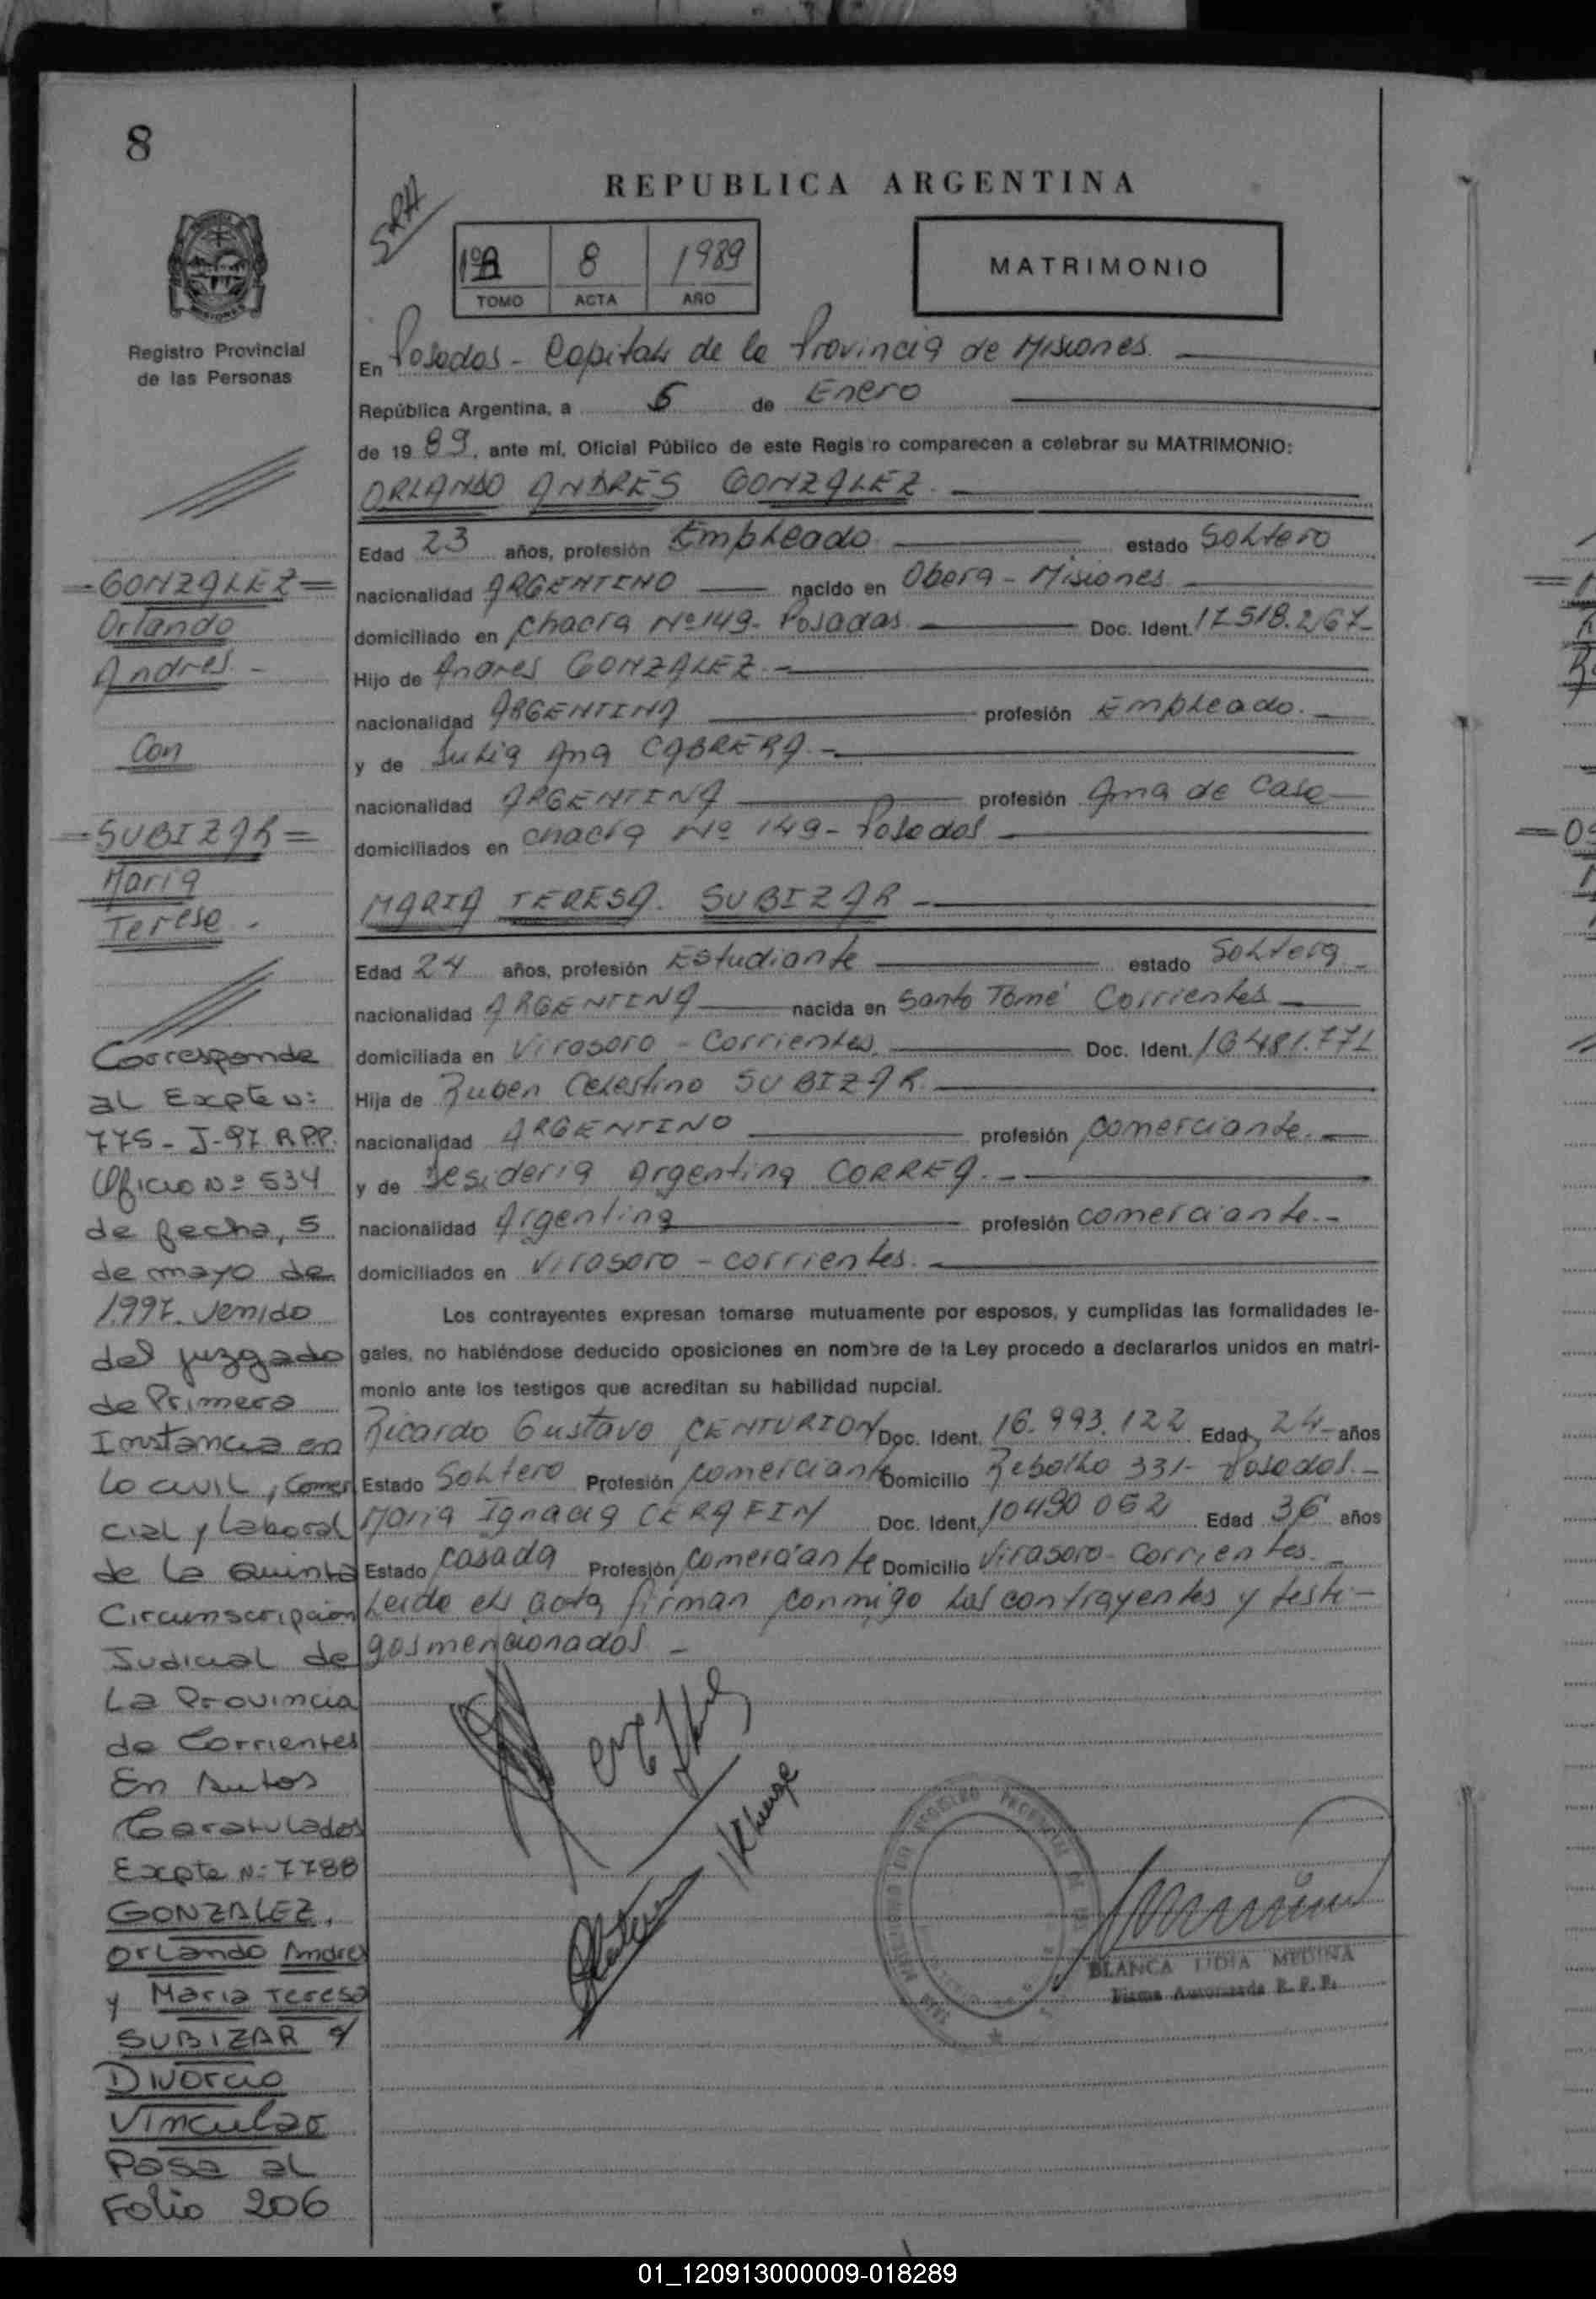 8
REPUBLICA ARGENTINA
SRA
8 1989
TOMO ACTA AÑO
MATRIMONIO
Registro Provincial
de las Personas
En Posadas - Capital de la Provincia de Misiones.
República Argentina, a 5 de Enero
de 19 89, ante mí, Oficial Público de este Regis ro comparecen a celebrar su MATRIMONIO:
ORLANDO ANDRES GONZALEZ.
Edad 23 años, profesión Empleado estado Soltero
nacionalidad ARGENTINO nacido en Obera - Misiones
domiciliado en chacra Nº 149- Posadas. Doc. Ident. 17518.267-
Hijo de Andres GONZALEZ.-
nacionalidad ARGENTINA profesión Empleado.
y de Julia Ana CABRERA.-
nacionalidad ARGENTINA profesión Ama de Casa
domiciliados en chacra Nº 149- Posadas
MARIA TERESA. SUBIZAR -
Edad 24 años, profesión Estudiante estado Soltera
nacionalidad ARGENTINA nacida en Santo Tomé Corrientes
domiciliada en Virasoro - Corrientes. Doc. Ident. 16481.771
Hija de Ruben Celestino SUBIZAR.
nacionalidad ARGENTINO profesión comerciante.
y de Desideria Argentina CORREA.-
nacionalidad Argentina profesión comerciante.-
domiciliados en Virasoro - corrientes.
Los contrayentes expresan tomarse mutuamente por esposos, y cumplidas las formalidades le-
gales, no habiéndose deducido oposiciones en nombre de la Ley procedo a declararlos unidos en matri-
monio ante los testigos que acreditan su habilidad nupcial.
Ricardo Gustavo CENTURION Doc. Ident. 16.993.122 Edad 24 años
Estado Soltero Profesión comerciante Domicilio 331- Posadas.-
Maria Ignacia CERAFIN Doc. Ident. 10490062 Edad 36 años
Estado casada Profesión comerciante Domicilio Virasoro- Corrientes.-
Leida el acta, firman conmigo los contrayentes y testi-
gos mencionados -
BLANCA LIDIA MEDINA
Firma Autorizada R. P. P.
=GONZALEZ=
Orlando
Andres -
Con
=SUBIZAR=
Maria
Teresa.
Corresponde
al Expte N:
775- J-97 R.P.P.
Oficio Nº 534
de fecha, 5
de mayo de
1.997. venido
del juzgado
de Primera
Instancia en
lo civil, Comer
cial y laboral
de la Quinta
Circunscripción
Judicial de
La Provincia
de Corrientes
En Autos
Caratulados
Expte N: 7788
GONZALEZ,
Orlando Andres
y Maria Teresa
SUBIZAR s/
Divorcio
Vincular
Pasa al
Folio 206
01_120913000009-018289